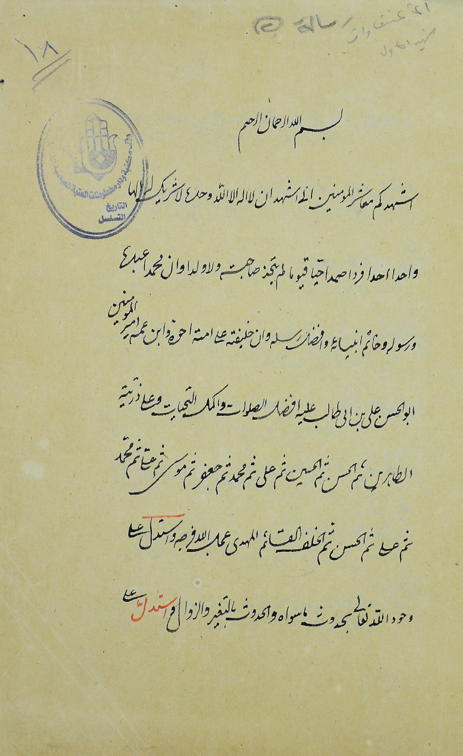 رسالة
١٨
بسم الله الرحمان الرحيم
اشهدكم معاشر المؤمنين اني اشهد ان لا اله الا الله وحده لا شريك له الها
واحدا احدا فردا صمدا حيا قيوما لم يتخذ صاحبة ولا ولدا وان محمدا عبده
ورسوله وخاتم انبيائه وافضل رسله وان خليفته على امته اخوه وابن عمه امير المؤمنين
ابو الحسن علي بن ابي طالب عليه افضل الصلوات واكمل التحيات وعلى ذريته
الطاهرين ثم الحسن ثم الحسين ثم علي ثم محمد ثم جعفر ثم موسى ثم علي ثم محمد
ثم علي ثم الحسن ثم الخلف القائم المهدي عجل الله فرجه واستدل على
وجود الله تعالى بحدوث ما سواه والحدوث بالتغير والزوال واستدل على
التاريخ
التسلسل